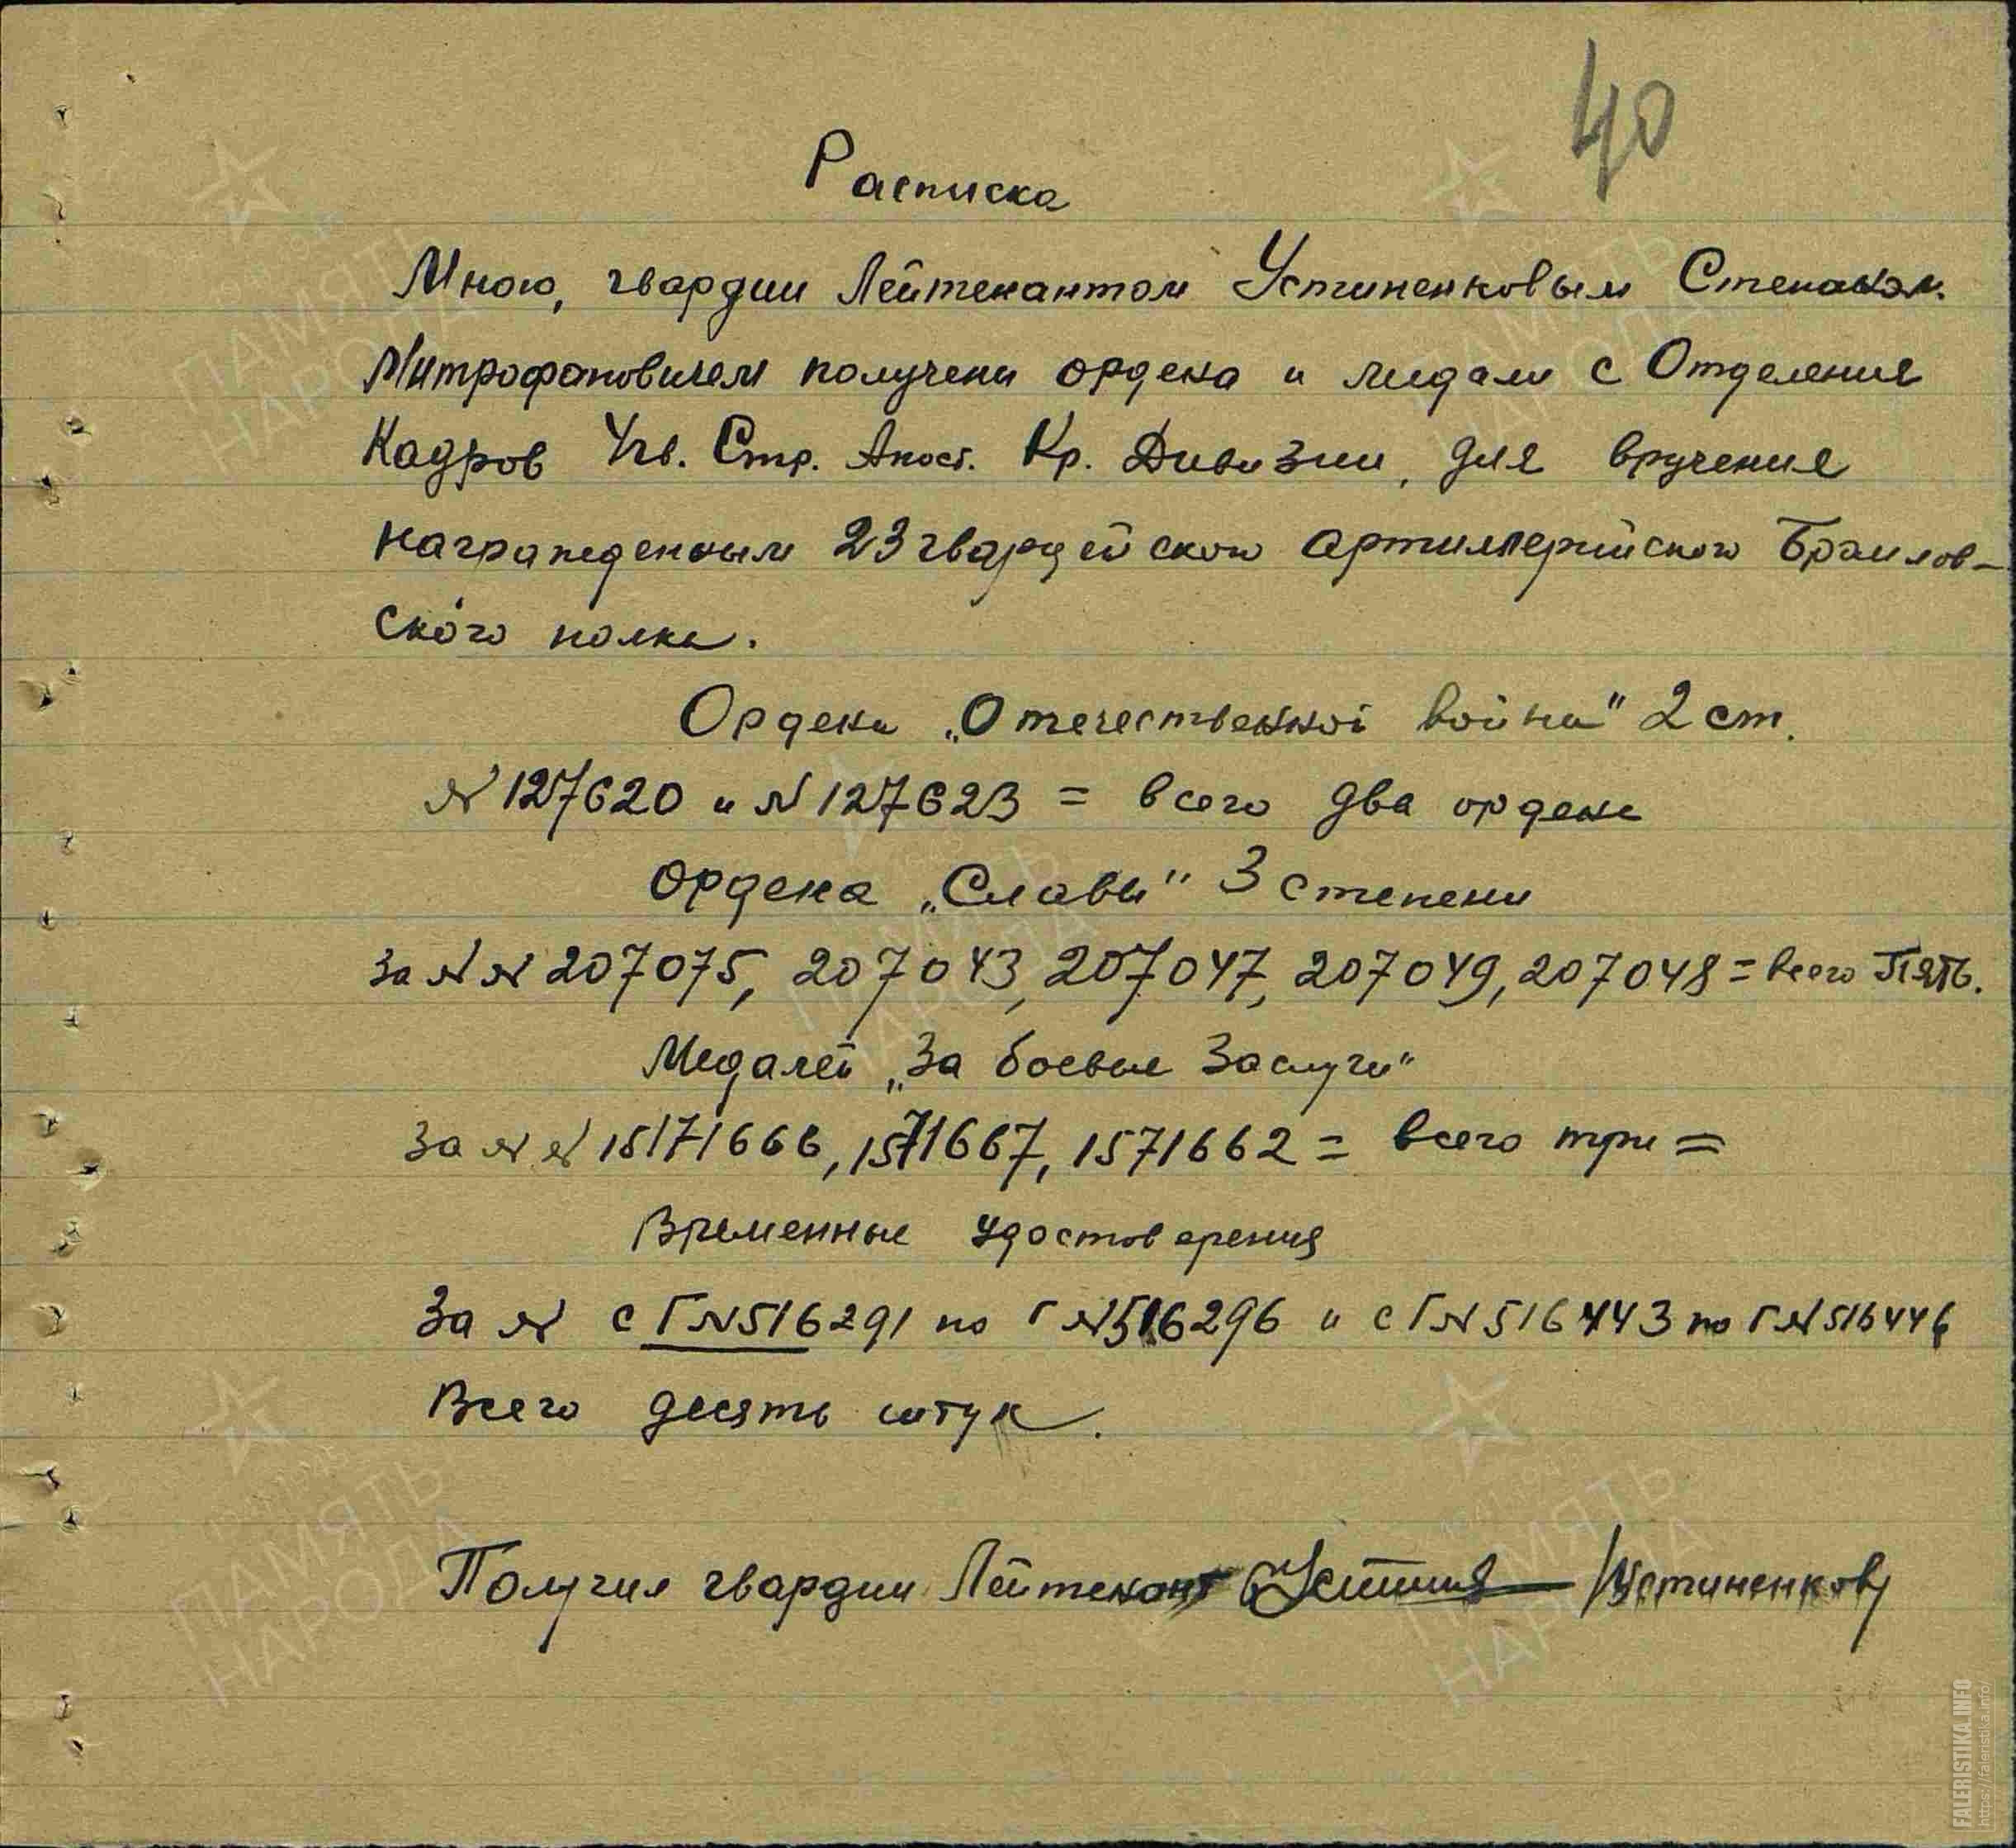 40
Расписка
Мною, гвардии Лейтенантом Устиненковым Степаном
Митрофановичем получены ордена и медали с Отделения
Кадров 4 гв. Стр. Апост. Кр. Дивизии, для вручения
награжденным 23 гвардейского артиллерийского Браилов-
ского полка.
Ордена „Отечественной война" 2 ст.
№ 127620 и № 127623 = всего два ордена
Ордена „Славы" 3 степени
За №№ 207075, 207043, 207047, 207049, 207048 = всего Пять.
Медалей „За боевые Заслуги"
За №№ 15171666, 1571667, 1571662 = всего три =
Временные удостоверения
За № с Г№516291 по Г№516296 и с Г№516443 по Г№516446
Всего десять штук.
Получил гвардии Лейтенант /Устиненков/
ПАМЯТЬ
НАРОДА
ПАМЯТЬ
НАРОДА
ПАМЯТЬ
НАРОДА
ПАМЯТЬ
НАРОДА
ПАМЯТЬ
НАРОДА
FALERISTIKA.INFO
https://faleristika.info/